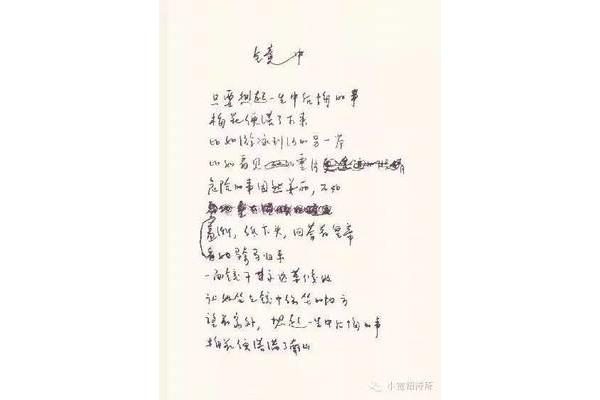 镜中
只要想起一生中后悔的事
梅花便落了下来
比如游泳到河的另一岸
比如看见
危险的事固然美丽，不如
羞惭，低下头，回答着皇帝
看她骑马归来
一面镜子永远等候她
让她坐在镜中常坐的地方
望着窗外，想起一生中后悔的事
梅花便落满了南山